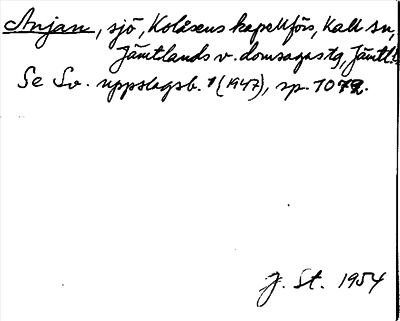 Anjan, sjö, Kolåsens kapellförs, Kall sn,
Jämtlands v. domsagas tg, Jämtl.
Se Sv. uppslagsb. 1 (1947), sp. 1072.
J. St. 1954